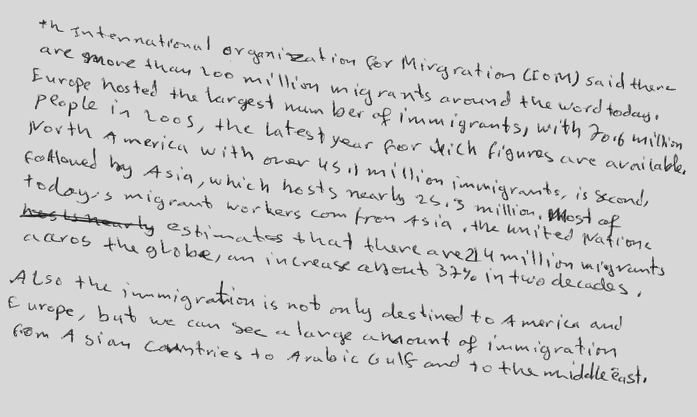 th International organization for Mirgration (IOM) said there
are more than 200 million migrants around the word today.
Europe hosted the largest number of immigrants, with 70.6 million
people in 2005, the latest year for which figures are available.
North America with over 45.1 million immigrants, is second,
followed by Asia, which hosts nearly 25.3 million. Most of
today,s migrant workers com from Asia. the united Natione
estimates that there are 214 million migrants
acros the globe, an increase about 37% in two decades.
Also the immigration is not only destined to America and
Europe, but we can see a large amount of immigration
from Asian countries to Arabic Gulf and to the middle east.